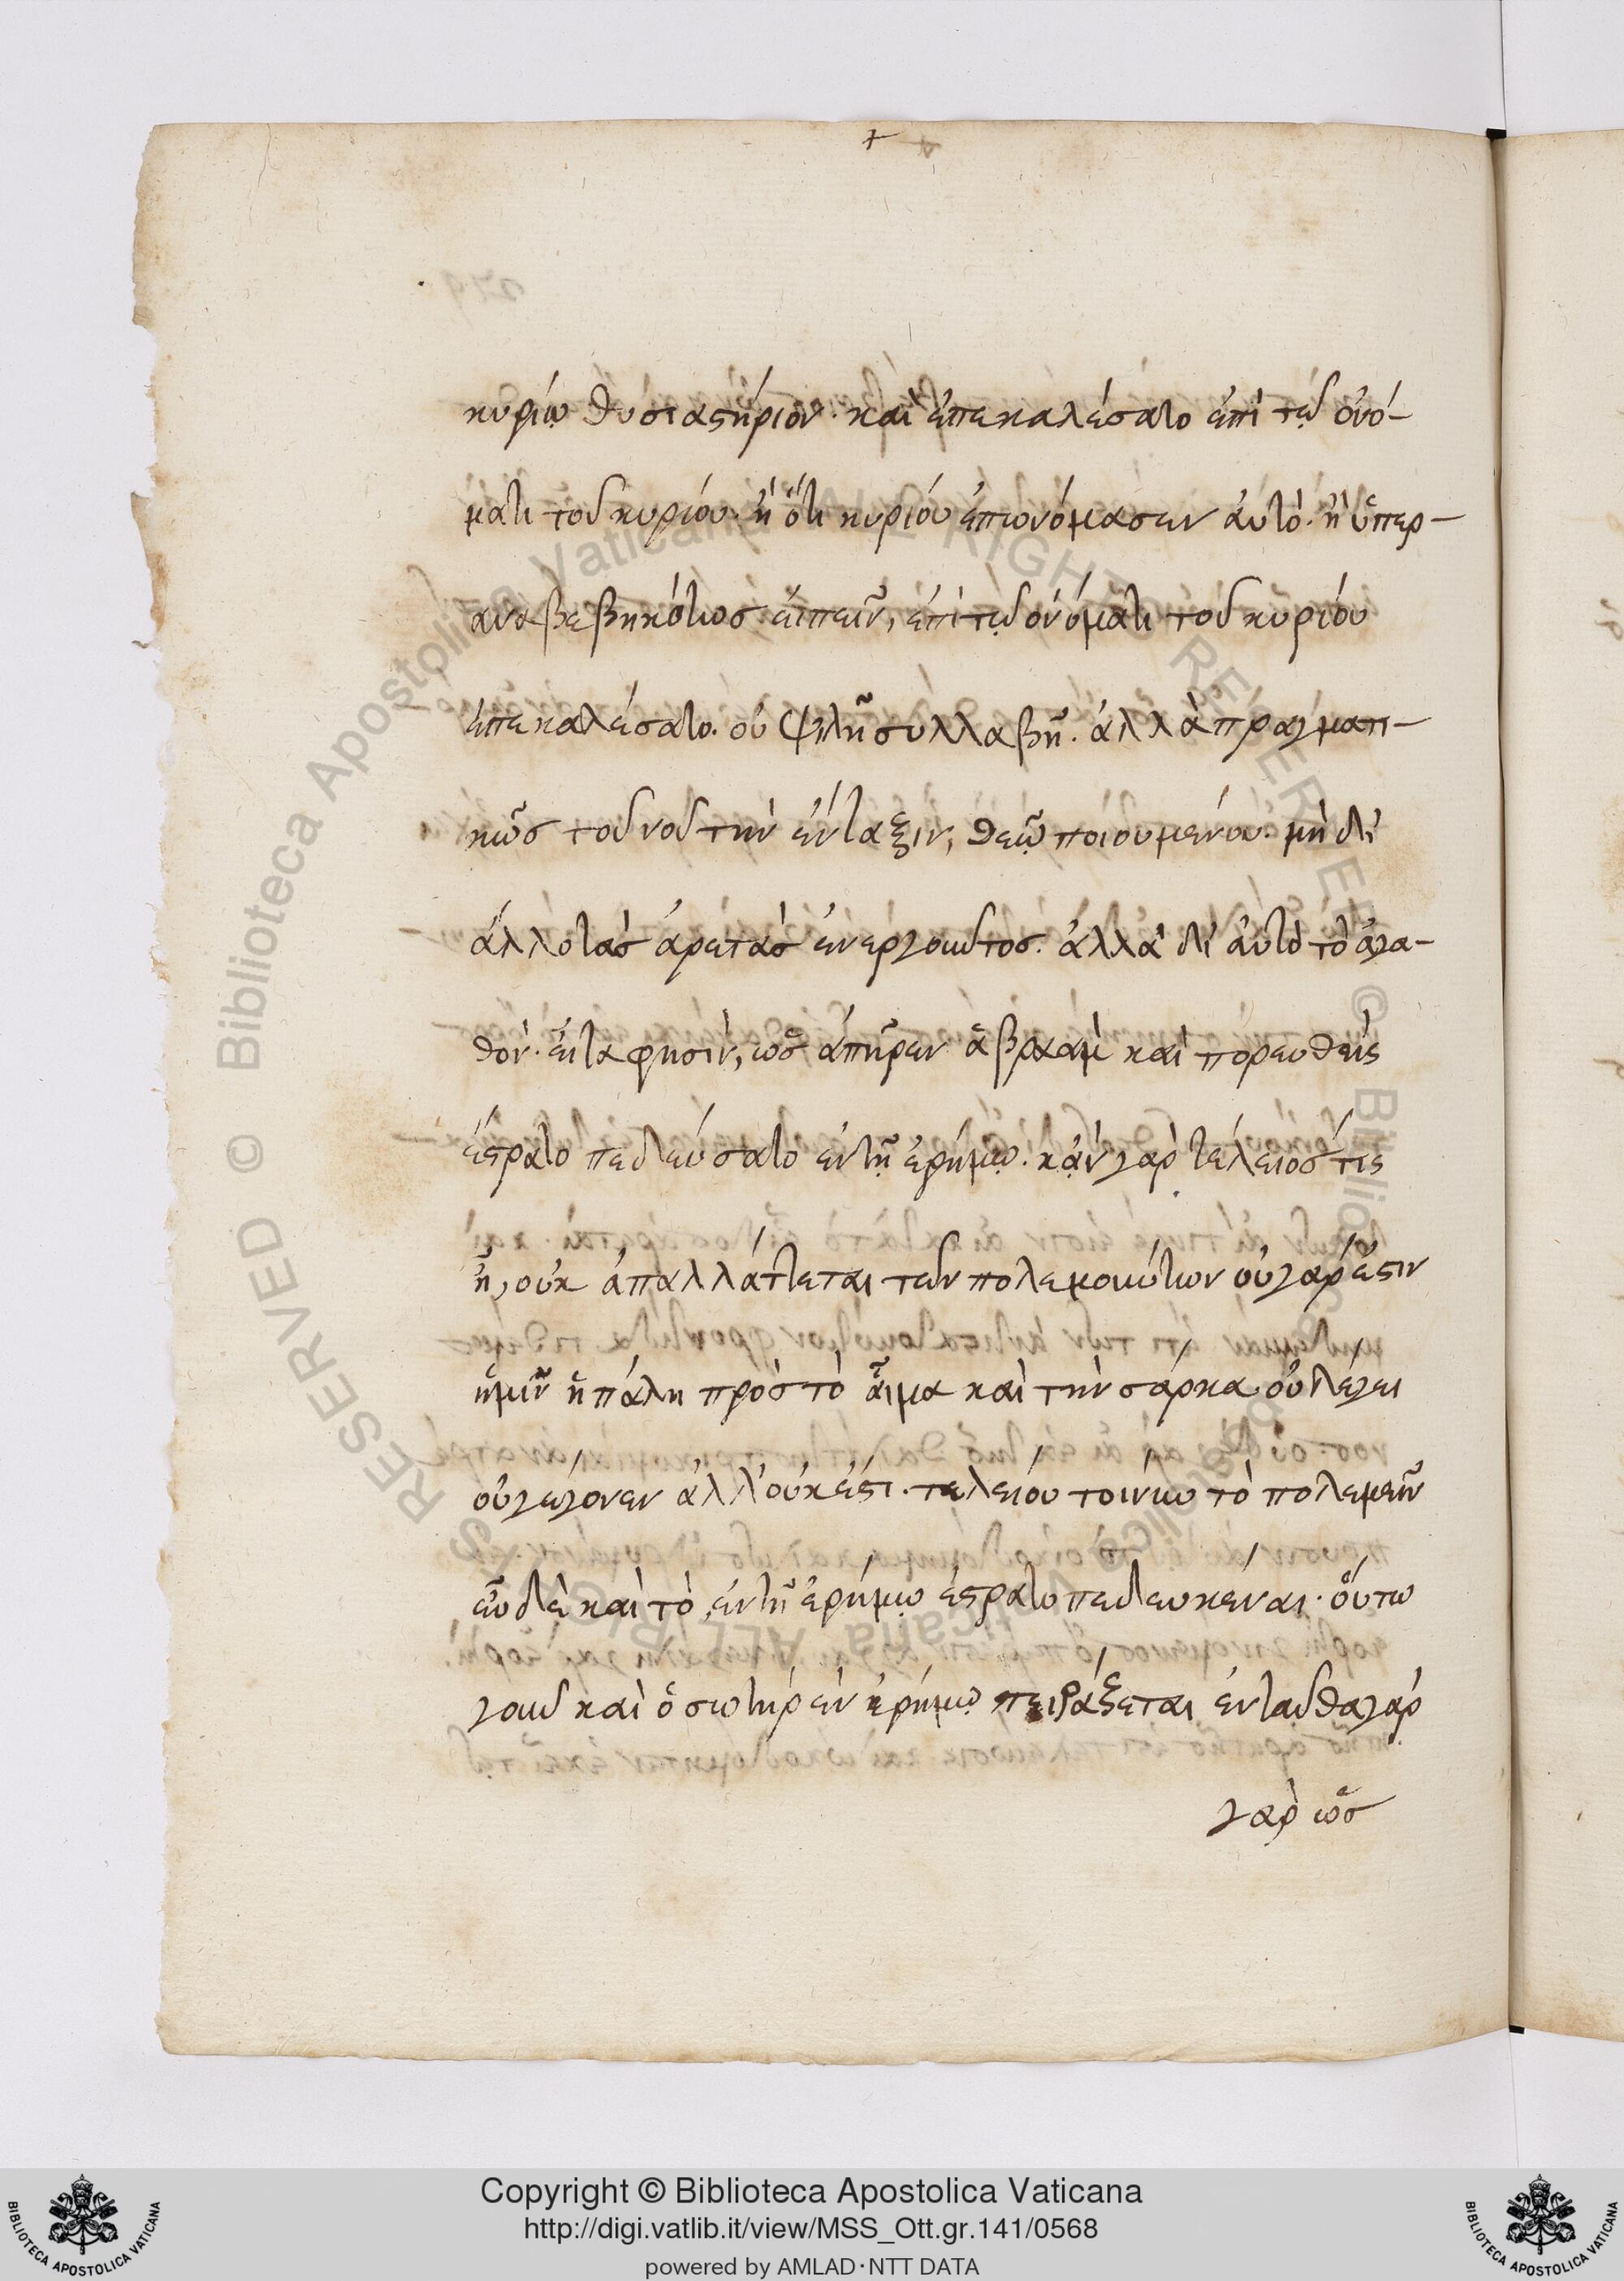 κυρίῳ θυσιαστήριον· καὶ ἐπεκαλέσατο ἐπὶ τῷ ὀνό-
ματι τοῦ κυρίου· ἢ ὅτι κυρίου ἐπωνόμασεν αὐτό· ἢ ὑπερ-
αναβεβηκότως εἰπεῖν, ἐπὶ τῷ ὀνόματι τοῦ κυρίου
ἐπεκαλέσατο· οὐ ψιλῇ συλλαβῇ· ἀλλὰ πραγματι-
κῶς τοῦ νοῦ τὴν ἔνταξιν, θεῷ ποιουμένου· μὴ δι'
ἄλλο τὰς ἀρετὰς ἐνεργοῦντος· ἀλλὰ δι' αὐτὸ τὸ ἀγα-
θόν· εἶτα φησὶν, ὡς ἀπῆρεν ἀβραὰμ καὶ πορευθεὶς
ἐστρατοπεδεύσατο ἐν τῇ ἐρήμῳ· κἂν γὰρ τέλειός τις
ᾖ, οὐκ ἀπαλλάττεται τῶν πολεμούντων οὐ γὰρ ἔστιν
ἡμῖν ἡ πάλη πρὸς τὸ αἷμα καὶ τὴν σάρκα οὐ λέγει
οὐ γέγονεν ἀλλ' οὐκ ἔστι· τελείου τοίνυν τὸ πολεμεῖν
εὖ δὲ καὶ τὸ ἐν τῇ ἐρήμῳ ἐστρατοπεδευκέναι· οὕτω
γοῦν καὶ ὁ σωτὴρ ἐν ἐρήμῳ πειράζεται ἐνταῦθα γὰρ
γὰρ ὡς
Copyright © Biblioteca Apostolica Vaticana
http://digi.vatlib.it/view/MSS_Ott.gr.141/0568
powered by AMLAD·NTT DATA